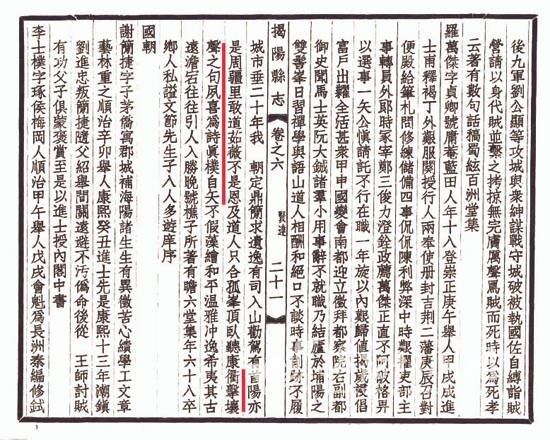 後九軍劉公顯等攻城與衆紳謀戰守城破被執國佐自縛詣賊
營請以身代賊並繫之拷掠無完膚厲聲罵賊而死時以爲死孝
云著有數句話稿蜀絃百洲堂集
羅萬傑字貞卿號庸菴藍田人年十八登崇正庚午舉人甲戌成進
士甫釋褐丁外艱服闋授行人兩奉使册封吉荆二藩庚辰召對
便殿給筆札問修練儲備四事侃侃陳利弊深中時艱擢吏部主
事轉員外郎時冢宰鄭三俊力澄銓政薦萬傑正直不阿破格畀
以選事一矢公愼請託不行在職一年旋以內艱歸值揭歲祲倡
富戶出糶全活甚衆甲申國變會南都迎立徵拜都察院右副都
御史聞馬士英阮大鋮諸羣小用事辭不就職乃結廬於埔陽之
雙髻峯日習禪學與語山道人相酬和絕口不談時事削跡不履
揭陽縣志 卷之六 賢達 二十一
城市垂二十年我 朝定鼎簡求遺逸有司入山勸駕有首陽亦
是周疆里敢道茹薇不是恩及道人只合孤峯頂臥聽康衢擊壤
聲之句夙喜爲詩眞樸自矢不假藻繪和平溫雅冲逸希夷其古
遠澹宕往往引人入勝晚號樵子所著有瞻六堂集年六十八卒
鄉人私諡文節先生子八人多遊庠序
國朝
謝簡捷字子茅僑寓郡城補海陽諸生生有異徵苦心績學工文章
藝林重之順治辛卯舉人康熙癸丑進士先是康熙十三年潮鎮
劉進忠叛簡捷隨父紹舉間關遠避不汚僞命後從 王師討賊
有功父子俱蒙褒賞至是以進士授內閣中書
李士樸字琢侯梅岡人順治甲午舉人戊戌會魁爲長洲泰編修